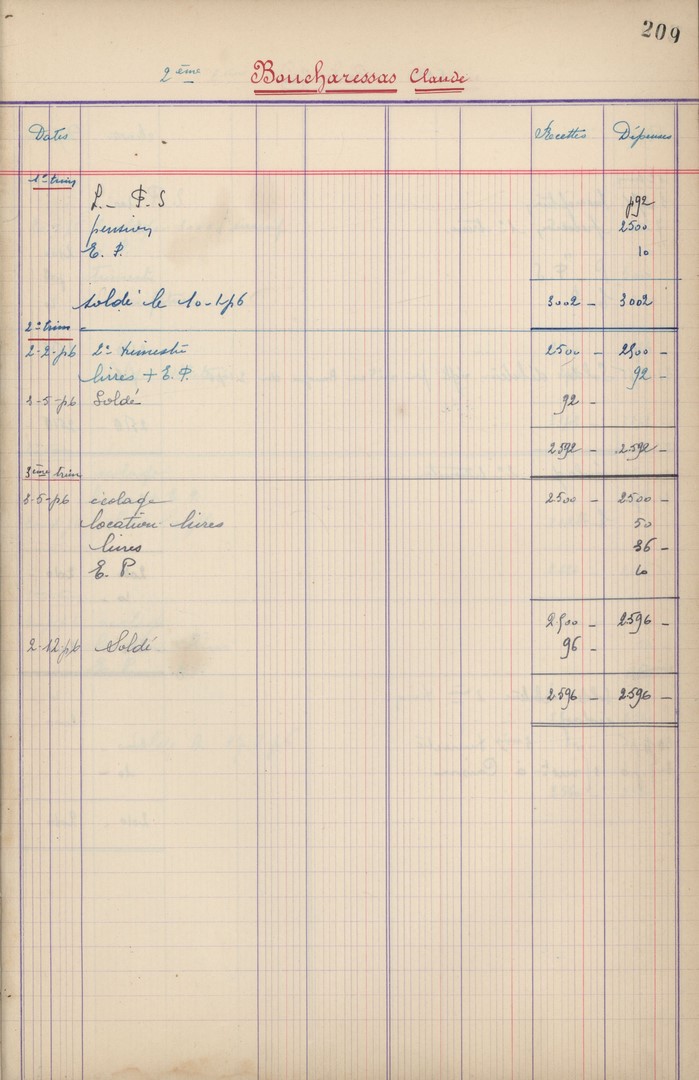 209
2 ème Boucharessas Claude
Dates Recettes Dépenses
1er trim
L. - P. S 492
pension 2500
E. P. 10
soldé le 10-1-46 3002 - 3002
2e trim -
2-2-46 2e trimestre 2500 - 2500 -
livres + E. P. 92 -
3-5-46 Soldé 92 -
2592 - 2592 -
3ème trim
3-5-46 écolage 2500 - 2500 -
location livres 50
livres 36 -
E. P. 10
2500 - 2596 -
2-12-46 Soldé 96 -
2596 - 2596 -